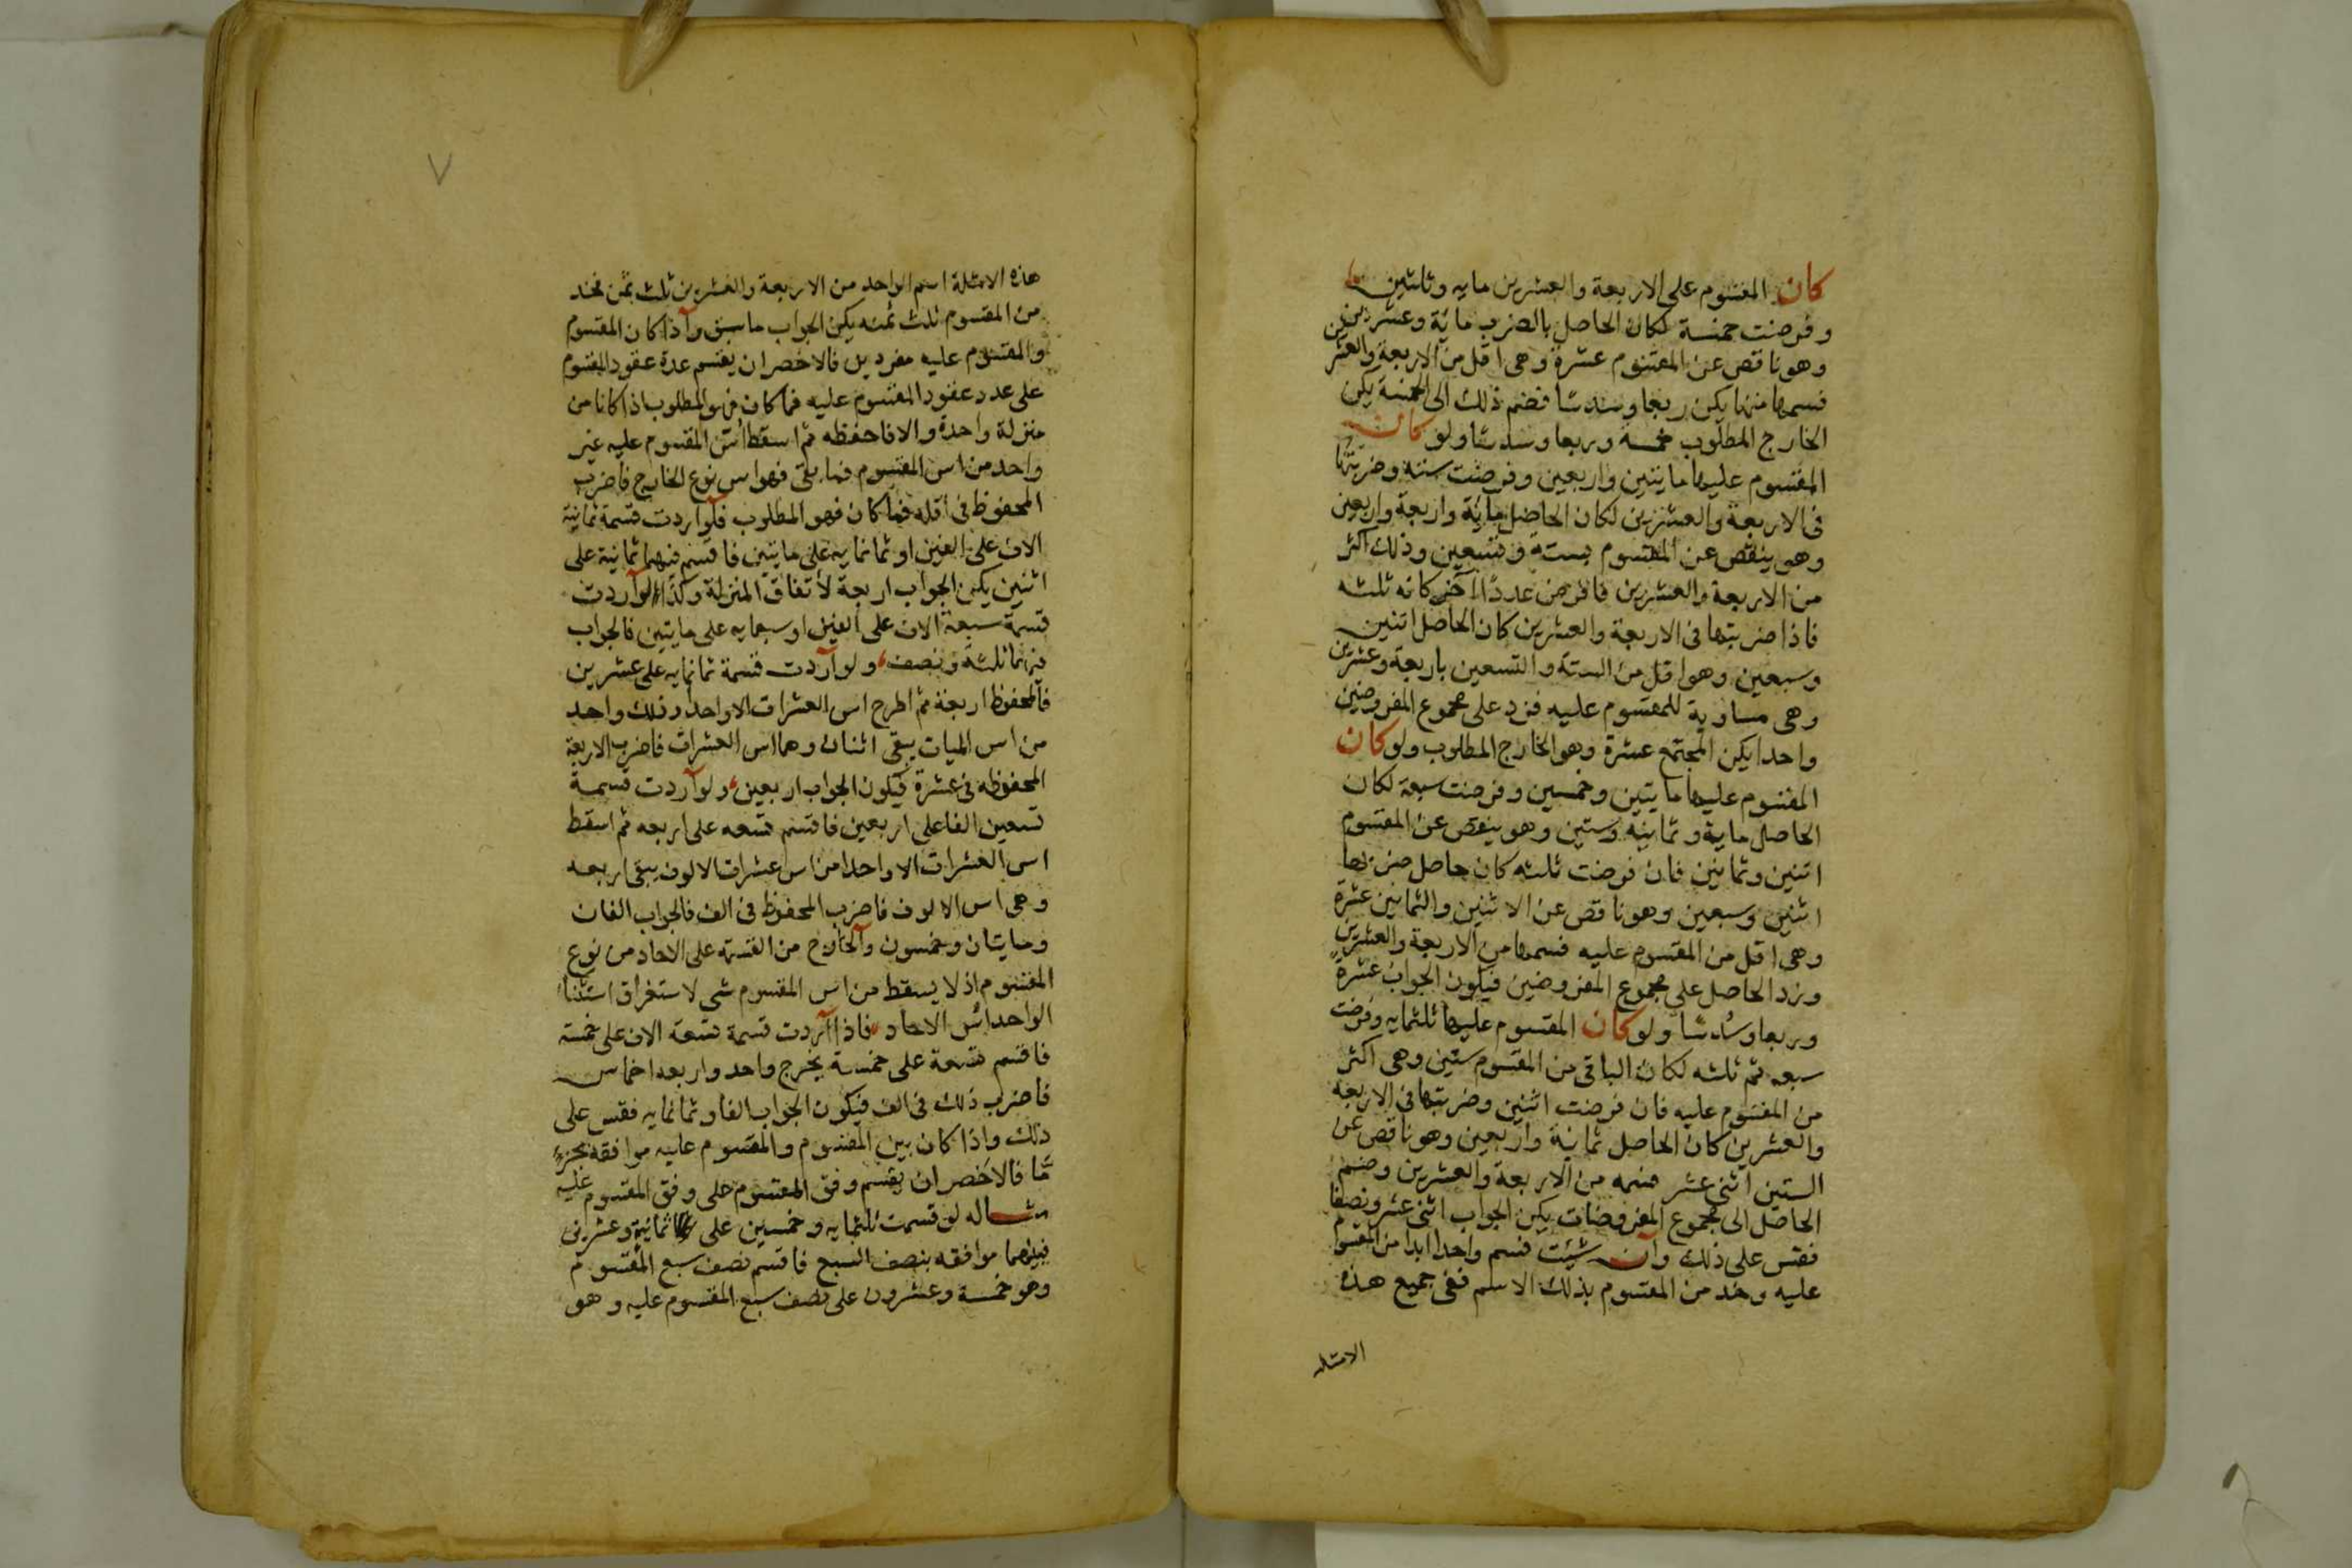 كان المقسوم على الاربعة والعشرين مايه وثلثين
وفرضت خمسة لكان الحاصل بالضرب مائة وعشرين
وهو ناقص عن المقسوم عشرة وهى اقل من الاربعة والعشرين
فسمها منها يكن ربعا وسدسا فضم ذلك الى الخمسة يكن
الخارج المطلوب خمسه وربعا وسدسا ولو كان
المقسوم عليها مايتين واربعين وفرضت سته وضربتها
فى الاربعة والعشرين لكان الحاصل مائة واربعة واربعين
وهو ينقص عن المقسوم بستة وتسعين وذلك اكثر
من الاربعة والعشرين فافرض عددا آخر كانه ثلثه
فاذا ضربتها فى الاربعة والعشرين كان الحاصل اثنين
وسبعين وهو اقل من الستة والتسعين باربعة وعشرين
وهى مساوية للمقسوم عليه فزد على مجموع المفروضين
واحدا يكن المجتمع عشرة وهو الخارج المطلوب ولو كان
المقسوم عليها مايتين وخمسين وفرضت سبعة لكان
الحاصل ماية وثمانيه وستين وهو ينقص عن المقسوم
اثنين وثمانين فان فرضت ثلثه كان حاصل ضربها
اثنين وسبعين وهو ناقص عن الاثنين والثمانين عشرة
وهى اقل من المقسوم عليه فسمها من الاربعة والعشرين
وزد الحاصل على مجموع المفروضين فيكون الجواب عشرة
وربعا وسدسا ولو كان المقسوم عليها ثلثمايه وفرضت
سبعه ثم ثلثه لكان الباقى من المقسوم ستين وهى اكثر
من المقسوم عليه فان فرضت اثنين وضربتها فى الاربعه
والعشرين كان الحاصل ثمانية واربعين وهو ناقص عن
الستين اثنى عشر فسمه من الاربعة والعشرين وضم
الحاصل الى مجموع المفروضات يكن الجواب اثنى عشر ونصفا
فقس على ذلك وان شيئت فسم واحدا ابدا من المقسوم
عليه وخذ من المقسوم بذلك الاسم ففى جميع هذه
الامثله
هذه الامثلة اسم الواحد من الاربعة والعشرين ثلث ثمن فخذ
من المقسوم ثلث ثمنه يكن الجواب ما سبق واذا كان المقسوم
والمقسوم عليه مفردين فالاخصر ان يقسم عدة عقود المقسوم
على عدد عقود المقسوم عليه فما كان فهو المطلوب اذا كانا من
منزلة واحدة والا فاحفظه ثم اسقط اس المقسوم عليه غير
واحد من اس المقسوم فما بقى فهو اس نوع الخارج فاضرب
المحفوظ فى اقله فما كان فهو المطلوب فلو اردت قسمة ثمانية
الاف على الفين او ثمانمايه على مايتين فاقسم فيهما ثمانية على
اثنين يكن الجواب اربعة لاتفاق المنزلة وكذا لو اردت
قسمة سبعة الاف على الفين او سبعمايه على مايتين فالجواب
فيهما ثلثة ونصف ولو اردت قسمة ثمانمايه على عشرين
فالمحفوظ اربعة ثم اطرح اس العشرات الا واحدا وذلك واحد
من اس الميات يبقى اثنان وهما اس العشرات فاضرب الاربعة
المحفوظه فى عشرة فيكون الجواب اربعين ولو اردت قسمة
تسعين الفا على اربعين فاقسم تسعه على اربعه ثم اسقط
اس العشرات الا واحدا من اس عشرات الالوف يبقى اربعه
وهى اس الالوف فاضرب المحفوظ فى الف فالجواب الفان
ومايتان وخمسون والخارج من القسمة على الاحاد من نوع
المقسوم اذ لا يسقط من اس المقسوم شى لاستغراق استثنا
الواحد اس الاحاد فاذا اردت قسمة تسعة الاف على خمسة
فاقسم تسعة على خمسة يخرج واحد واربعه اخماس
فاضرب ذلك فى الف فيكون الجواب الفا وثمانمايه فقس على
ذلك واذا كان بين المقسوم والمقسوم عليه موافقه بجزء
ما فالاخصر ان يقسم وفق المقسوم على وفق المقسوم عليه
مثاله لو قسمت ثلثمايه وخمسين على ثمانية وعشرين
فبينهما موافقه بنصف السبع فاقسم نصف سبع المقسوم
وهو خمسة وعشرون على نصف سبع المقسوم عليه وهو